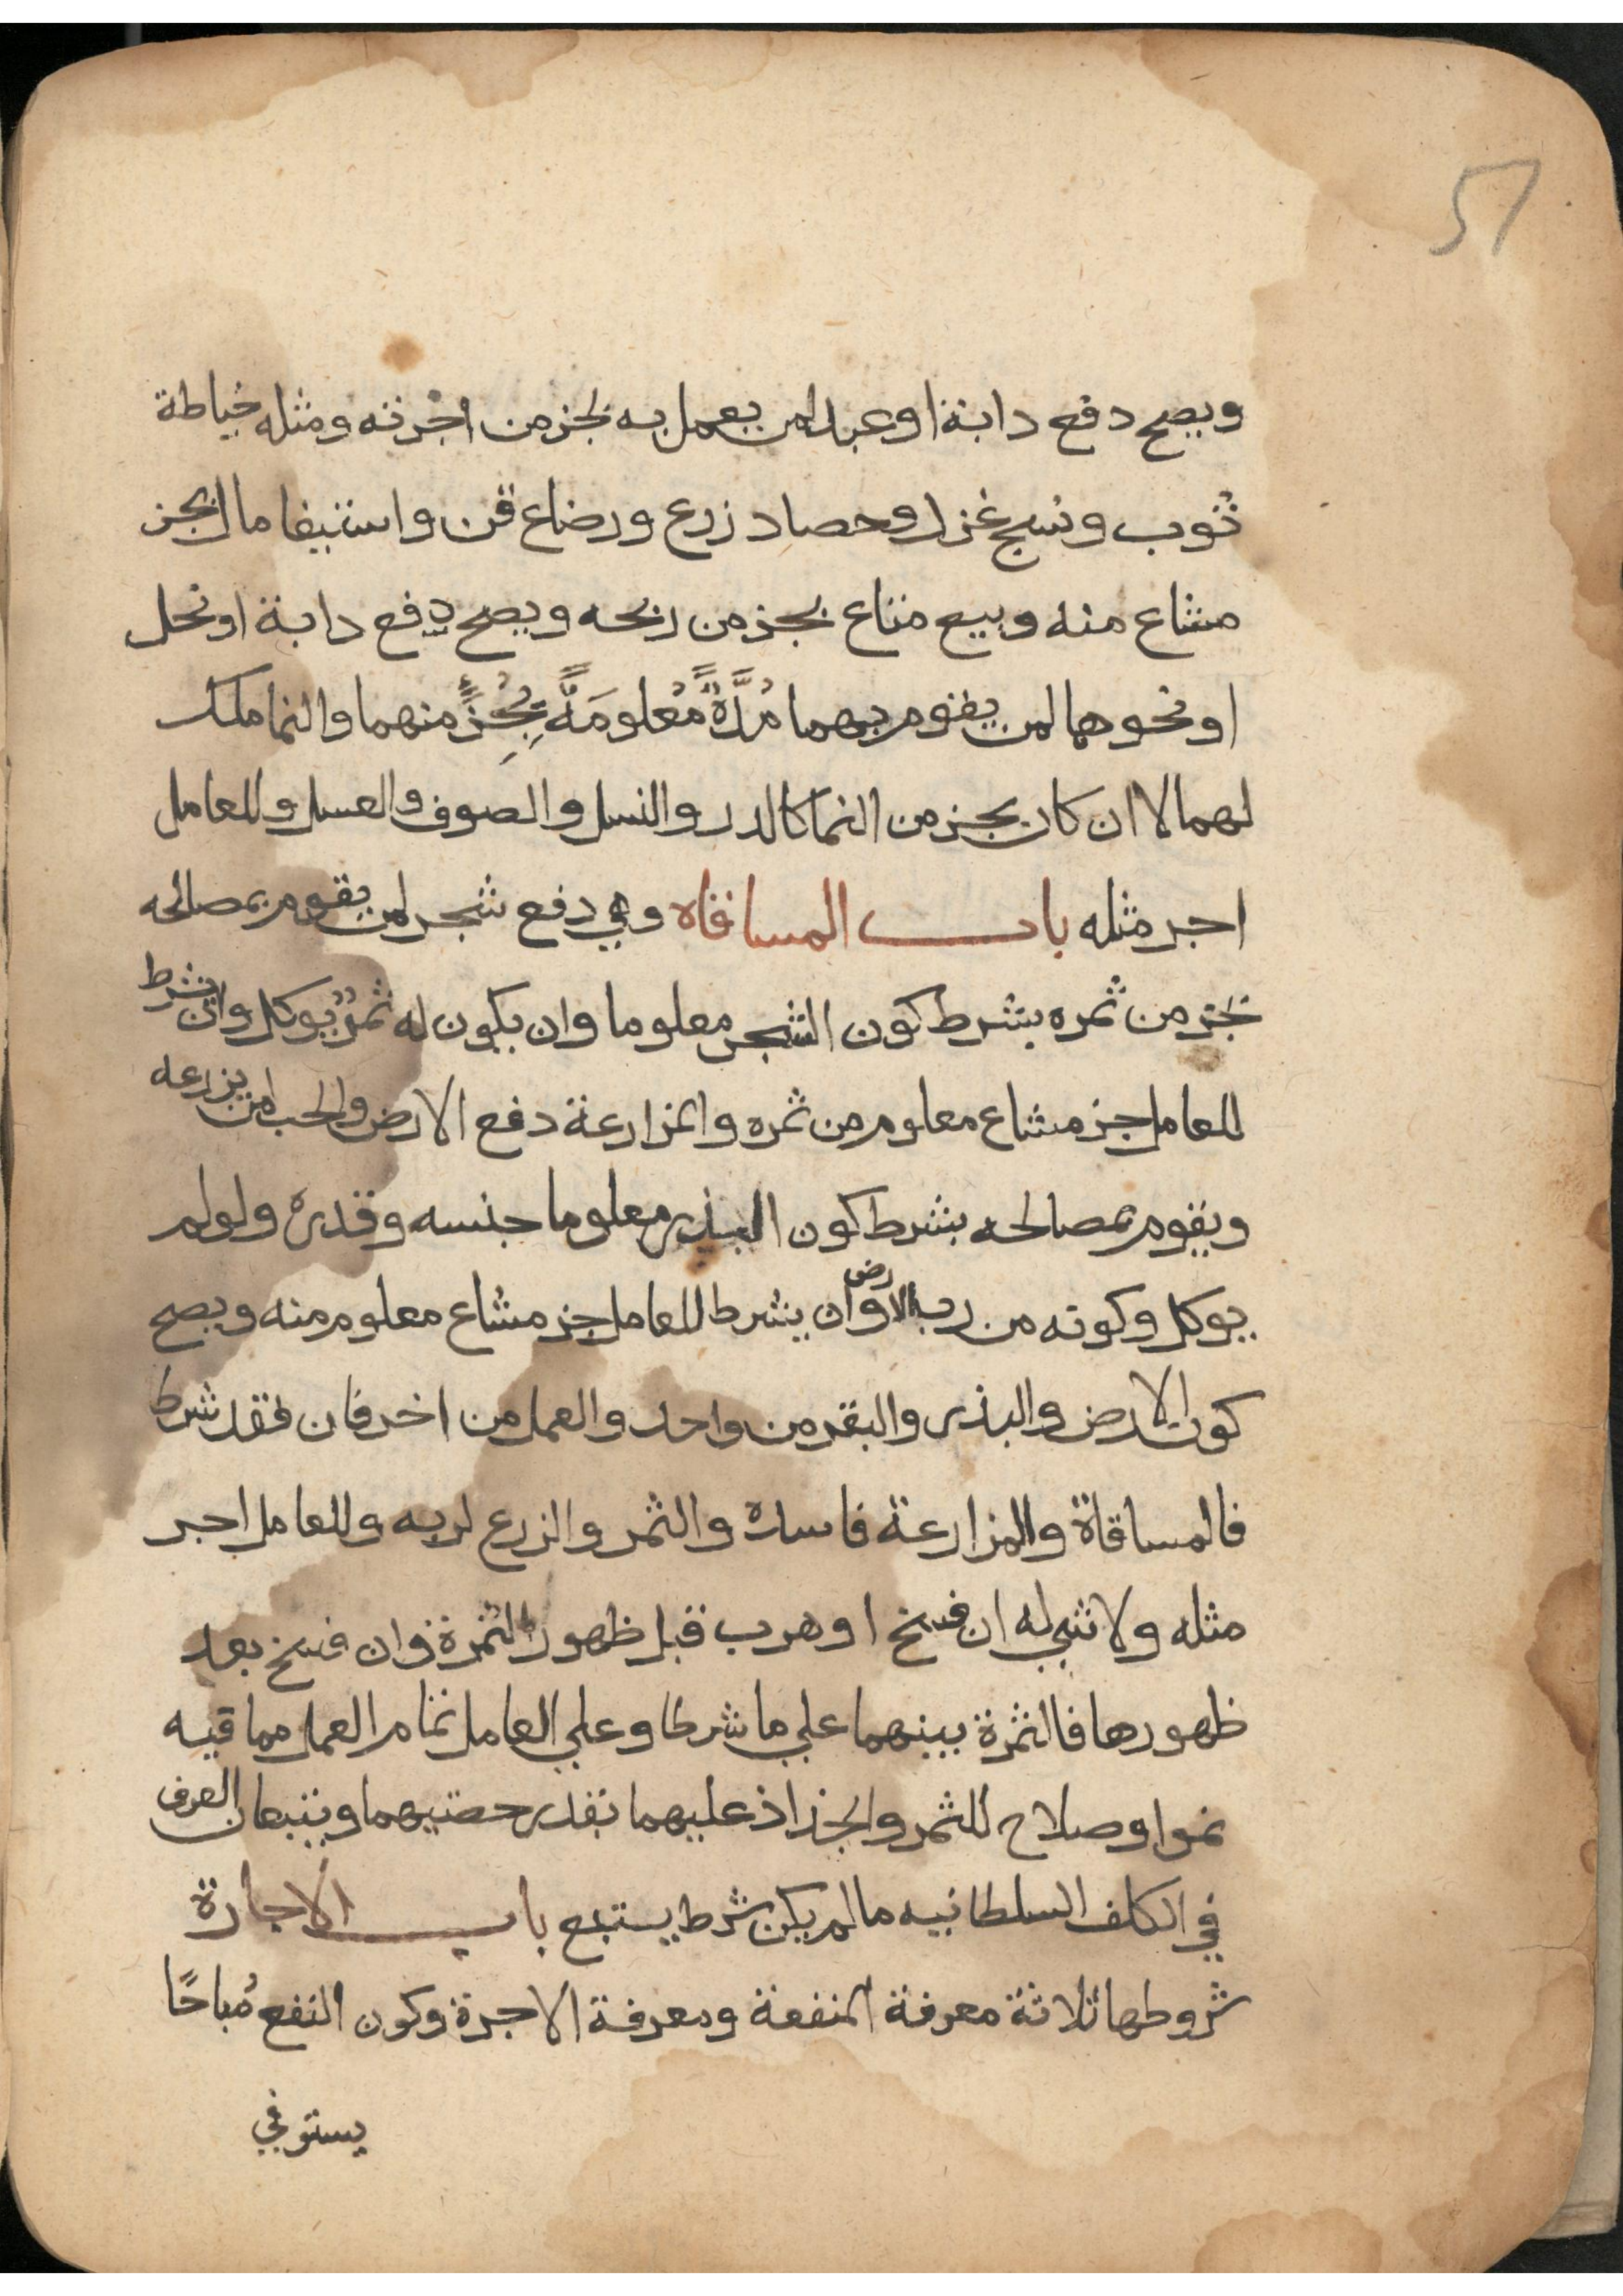 51
ويصح دفع دابة او عبد لمن يعمل به بجز من اجرته ومثله خياطة
ثوب ونسج غزل وحصاد زرع ورضاع قن واستيفا مال بجز
مشاع منه وبيع متاع بجز من ربحه ويصح دفع دابة او نحل
او نحوهما لمن يقوم بهما مُدَّةً مَّعلومَةً بِجُزٍ منهما والنما ملك
لهما لا ان كان بجز من النما كالدر والنسل والصوف والعسل وللعامل
اجر مثله باب المساقاه وهي دفع شجر لمن يقوم بمصالحه
بجز من ثمره بشرط كون الشجر معلوما وان يكون له ثمرٌ يوكل وان يشرط
للعامل جز مشاع معلوم من ثمره والمزارعة دفع الارض والحب لمن يزرعه
ويقوم بمصالحه بشرط كون البذر معلوما جنسه وقدره ولو لم
يوكل وكونه من رب الارض وان يشرط للعامل جز مشاع معلوم منه ويصح
كون الارض والبذر والبقر من واحد والعمل من اخر فان فقد شرط
فالمساقاة والمزارعة فاسدة والثمر والزرع لربه وللعامل اجر
مثله ولا شي له ان فسخ او هرب قبل ظهور الثمرة وان فسخ بعد
ظهورها فالثمرة بينهما علي ما شرطا وعلي العامل تمام العمل مما فيه
نموا وصلاح للثمر والجذاذ عليهما بقدر حصتيهما ويتبعان العرف
في الكلف السلطانيه ما لم يكن شرط يستبع باب الاجارة
شروطها ثلاثة معرفة المنفعة ومعرفة الاجرة وكون النفع مُباحًا
يستوفي